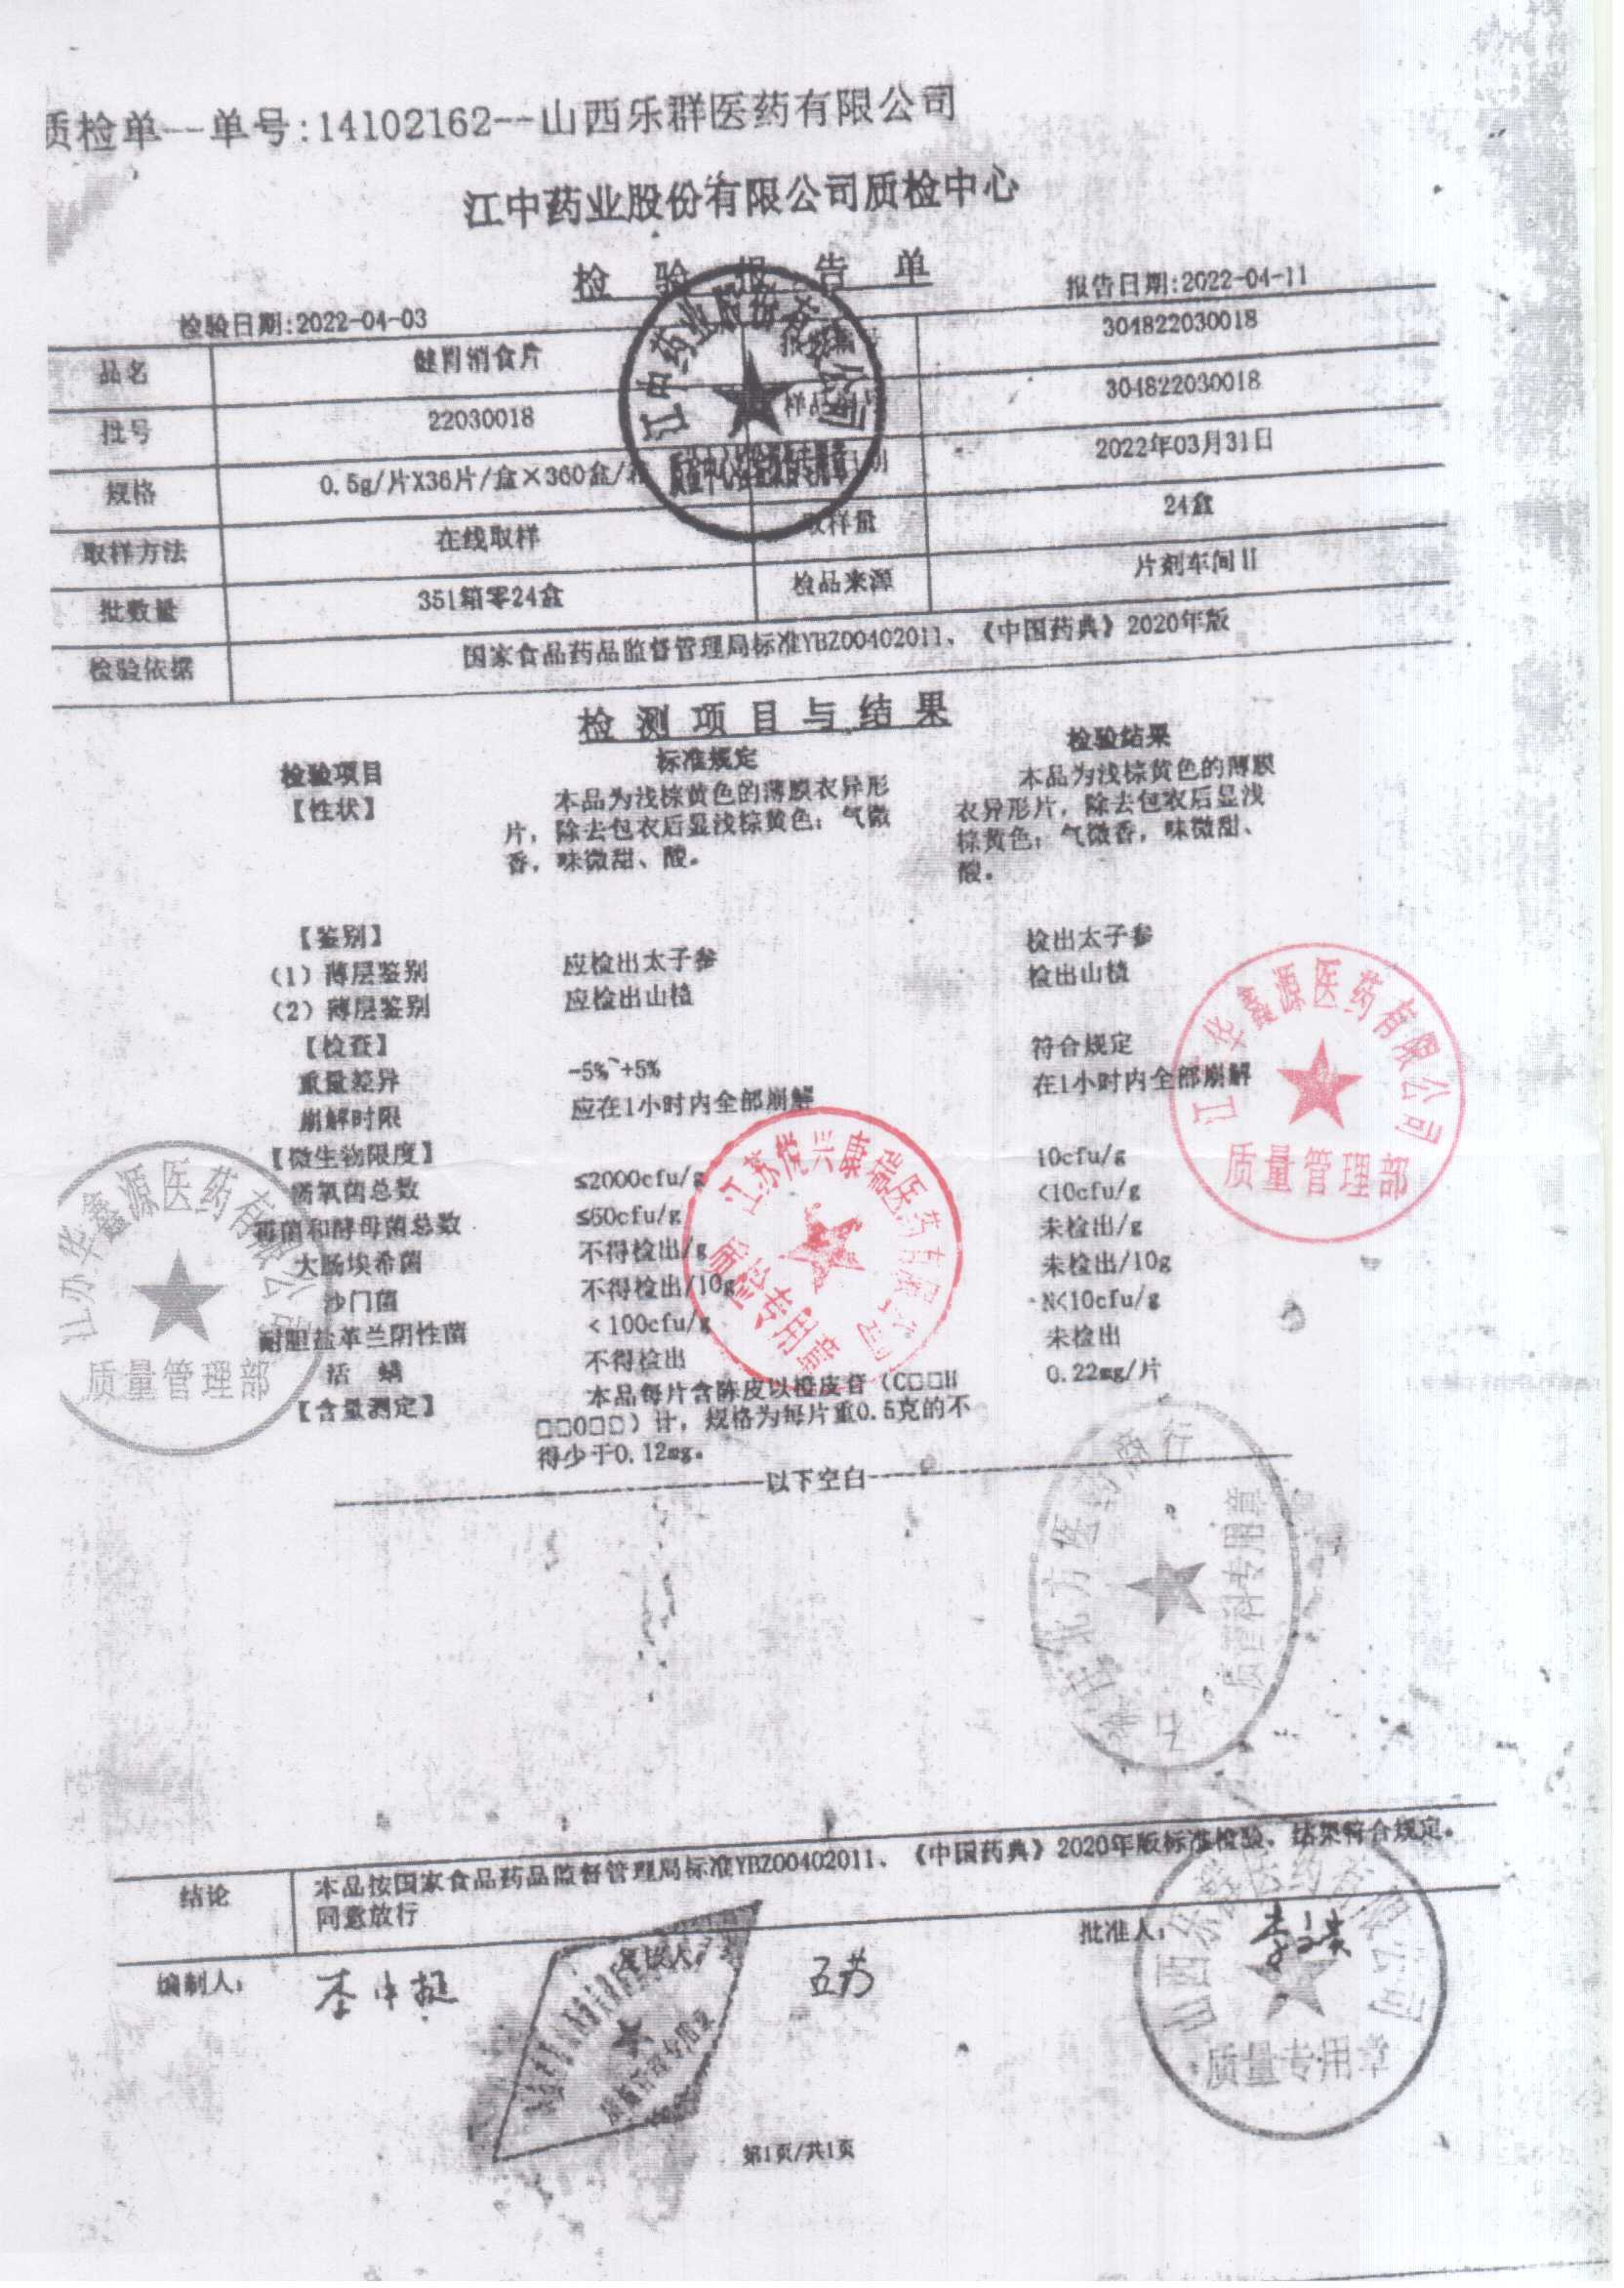 质检单--单号:14102162--山西乐群医药有限公司
江中药业股份有限公司质检中心
检验报告单
检验日期:2022-04-03 报告日期:2022-04-11
品名 健胃消食片 304822030018
批号 22030018 304822030018
规格 0.5g/片X36片/盒×360盒/ 2022年03月31日
取样方法 在线取样 取样量 24盒
批数量 351箱零24盒 检品来源 片剂车间II
检验依据 国家食品药品监督管理局标准YBZ00402011、《中国药典》2020年版
江中药业股份有限公司
检测项目与结果
检验项目 标准规定 检验结果
【性状】 本品为浅棕黄色的薄膜衣异形 本品为浅棕黄色的薄膜
片，除去包衣后显浅棕黄色；气微 衣异形片，除去包衣后显浅
香，味微甜、酸。 棕黄色；气微香，味微甜、
酸。
【鉴别】
(1) 薄层鉴别 应检出太子参 检出太子参
(2) 薄层鉴别 应检出山楂 检出山楂
【检查】
重量差异 -5%~+5% 符合规定
崩解时限 应在1小时内全部崩解 在1小时内全部崩解
【微生物限度】
需氧菌总数 ≤2000cfu/g 10cfu/g
霉菌和酵母菌总数 ≤50cfu/g <10cfu/g
大肠埃希菌 不得检出/g 未检出/g
沙门菌 不得检出/10g 未检出/10g
耐胆盐革兰阴性菌 <100cfu/g N<10cfu/g
活 螨 不得检出 未检出
【含量测定】 本品每片含陈皮以橙皮苷（C□□H 0.22mg/片
□□O□□）计，规格为每片重0.5克的不
得少于0.12mg。
以下空白
江苏华鑫源医药有限公司
质量管理部
江苏悦兴康瑞医药有限公司
质检专用章
江苏华鑫源医药有限公司
质量管理部
北方医药
质管科专用章
结论 本品按国家食品药品监督管理局标准YBZ00402011、《中国药典》2020年版标准检验，结果符合规定。
同意放行
编制人： 复核人： 批准人：
山西乐群医药有限公司
质量专用章
第1页/共1页